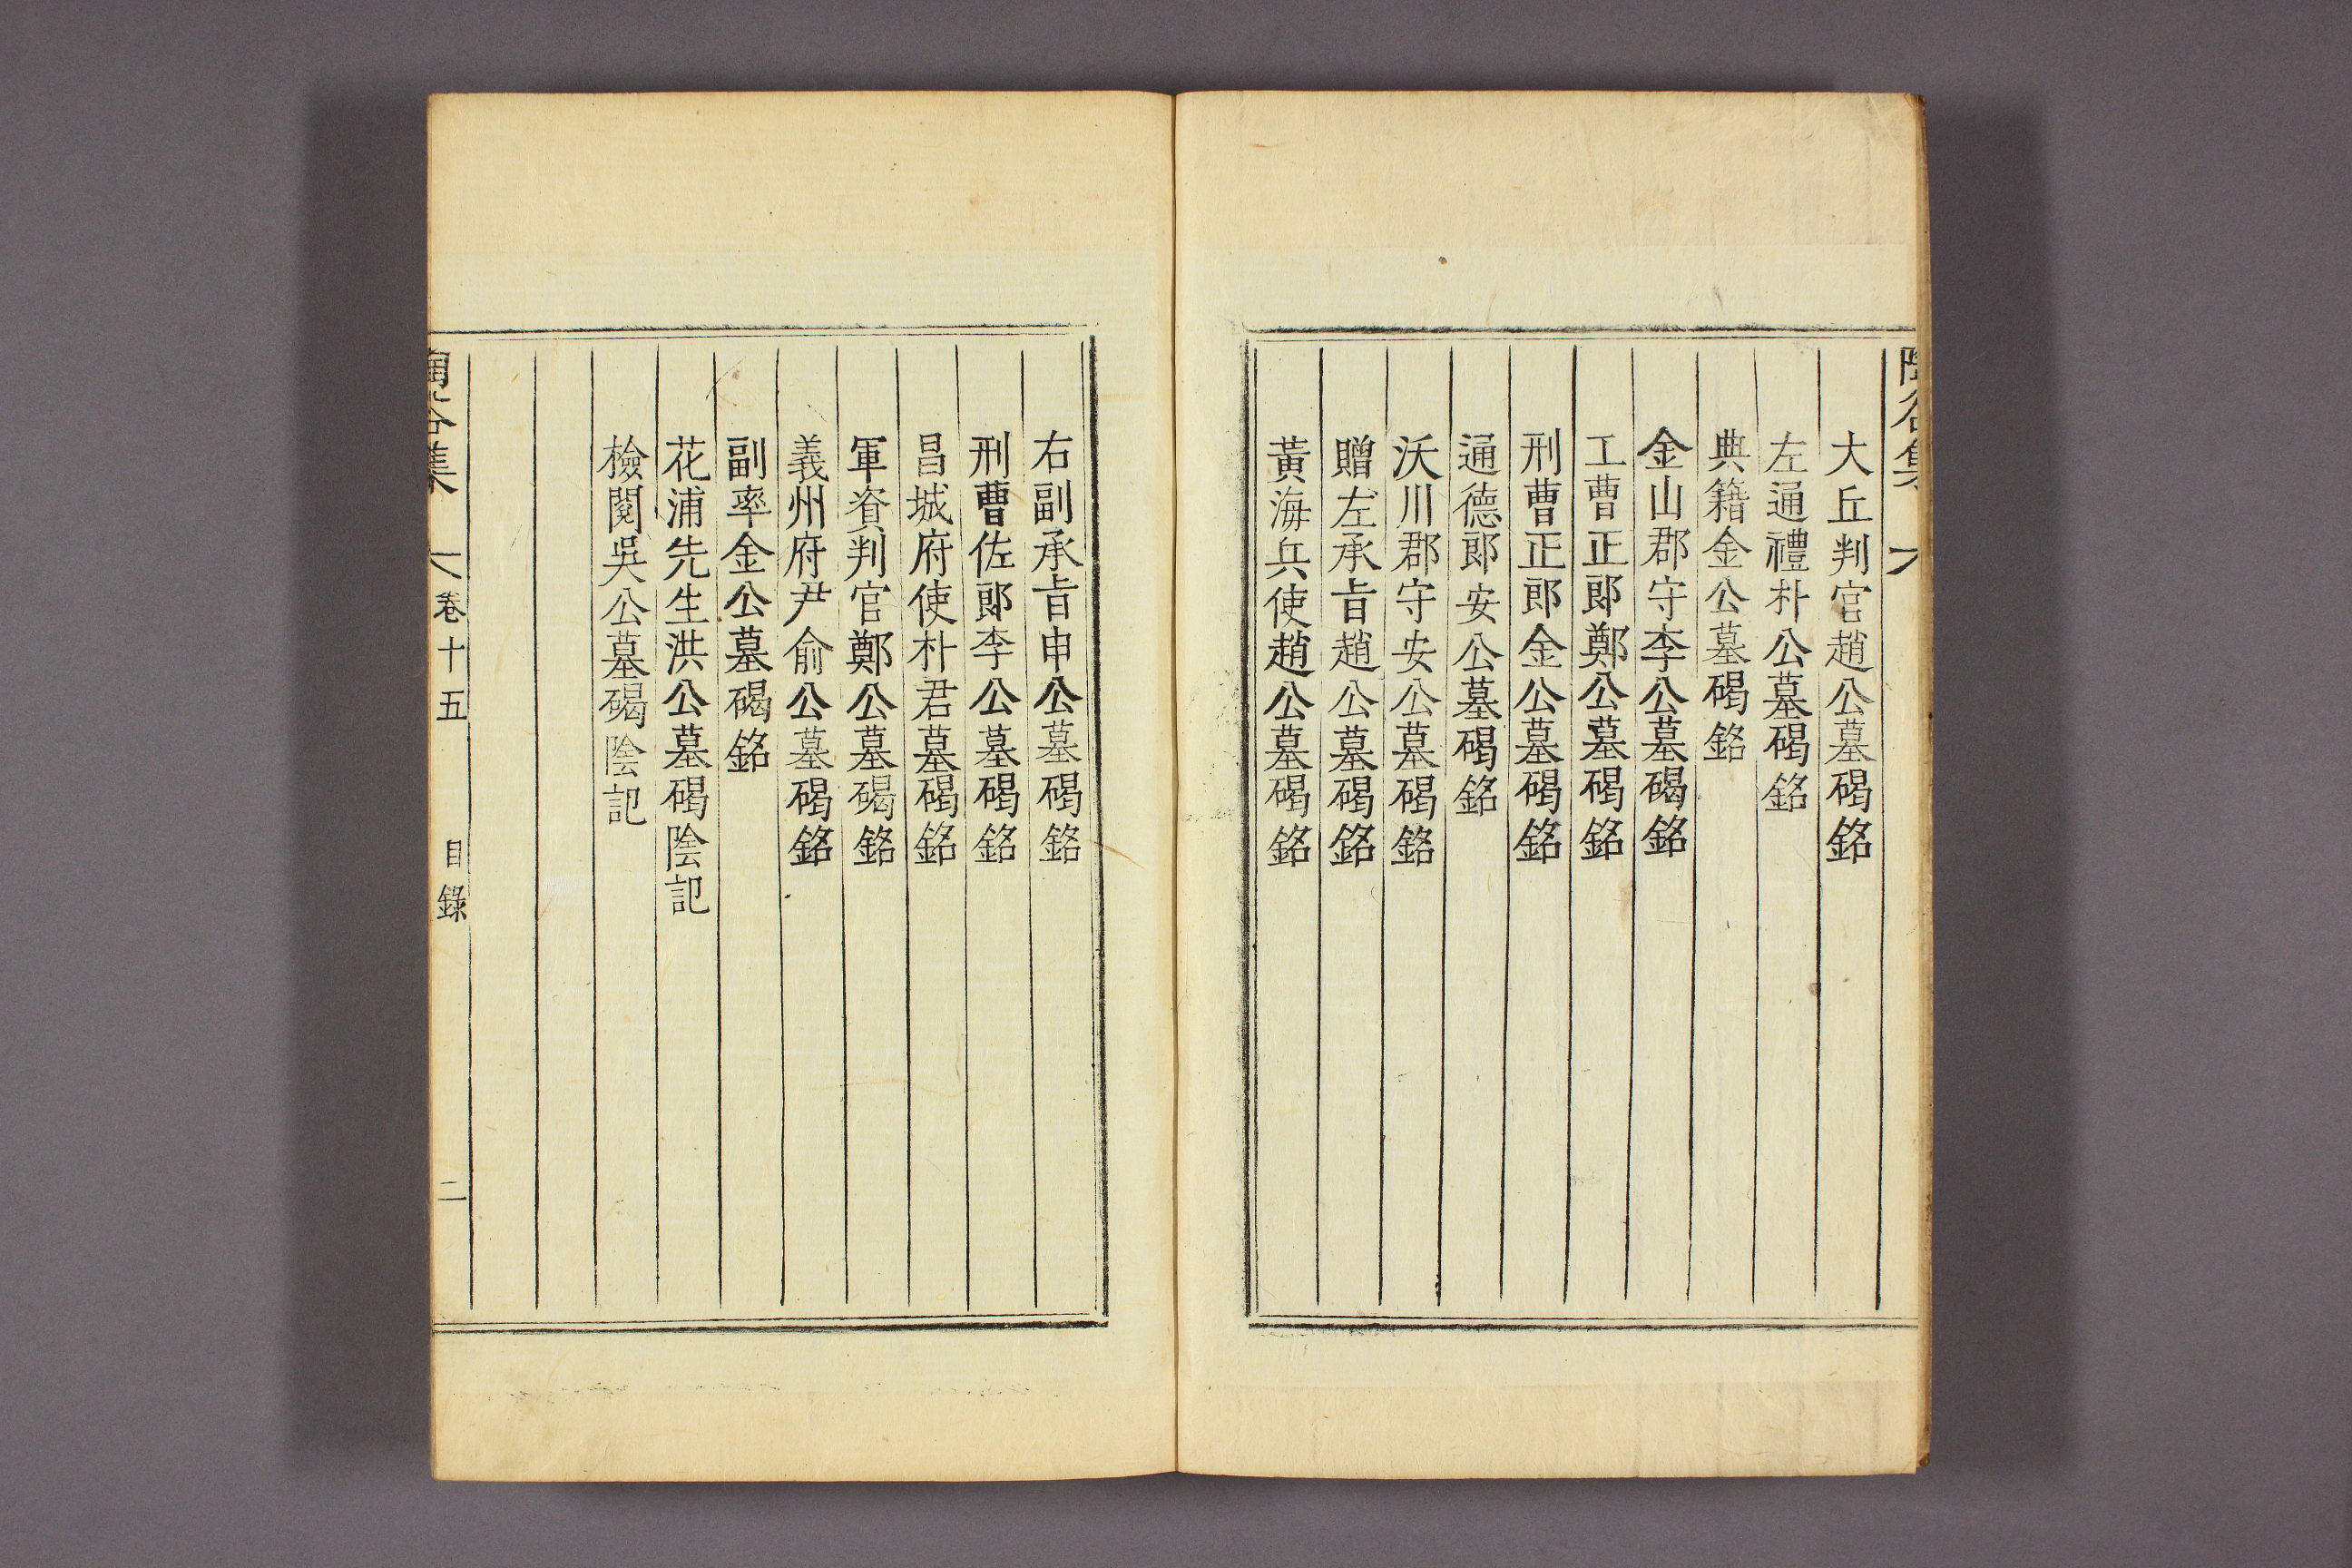 陶谷集
大丘判官趙公墓碣銘
左通禮朴公墓碣銘
典籍金公墓碣銘
金山郡守李公墓碣銘
工曹正郎鄭公墓碣銘
刑曹正郎金公墓碣銘
通德郎安公墓碣銘
沃川郡守安公墓碣銘
贈左承旨趙公墓碣銘
黃海兵使趙公墓碣銘
右副承旨申公墓碣銘
刑曹佐郎李公墓碣銘
昌城府使朴君墓碣銘
軍資判官鄭公墓碣銘
義州府尹俞公墓碣銘
副率金公墓碣銘
花浦先生洪公墓碣陰記
檢閱吳公墓碣陰記
陶谷集 卷十五 目錄 二